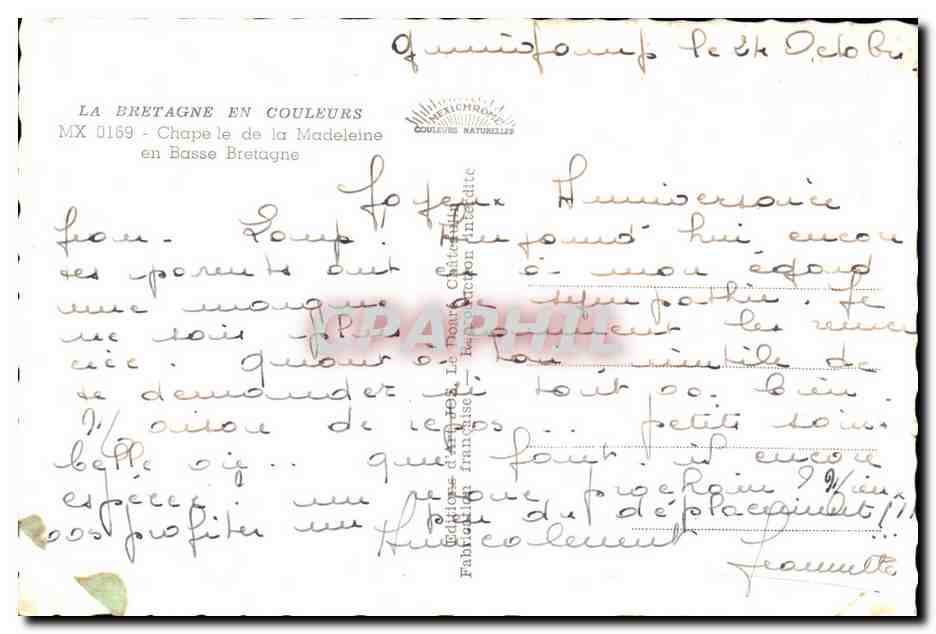 le 24 Octobre
LA BRETAGNE EN COULEURS
MX 0169 - Chapelle de la Madeleine
en Basse Bretagne
MEXICHROME
COULEURS NATURELLES
Joyeux Anniversaire
Jean-Loup. Aujourd'hui encore
tes parents ont eu à mon égard
une marque de sympathie. Je
ne sais plus comment les remer
cier. Quant à toi inutile de
te demander si tout va bien
Maison de repos... petits soins
belle vie... que faut-il encore
espérer. un retour prochain ? Viens
vos profiter un peu du déplacement !!!
Amicalement ...
Jeannette
Editions d'Art JOS, Le Doaré, Châteaulin
Fabrication française — Reproduction interdite
CPAPHIL